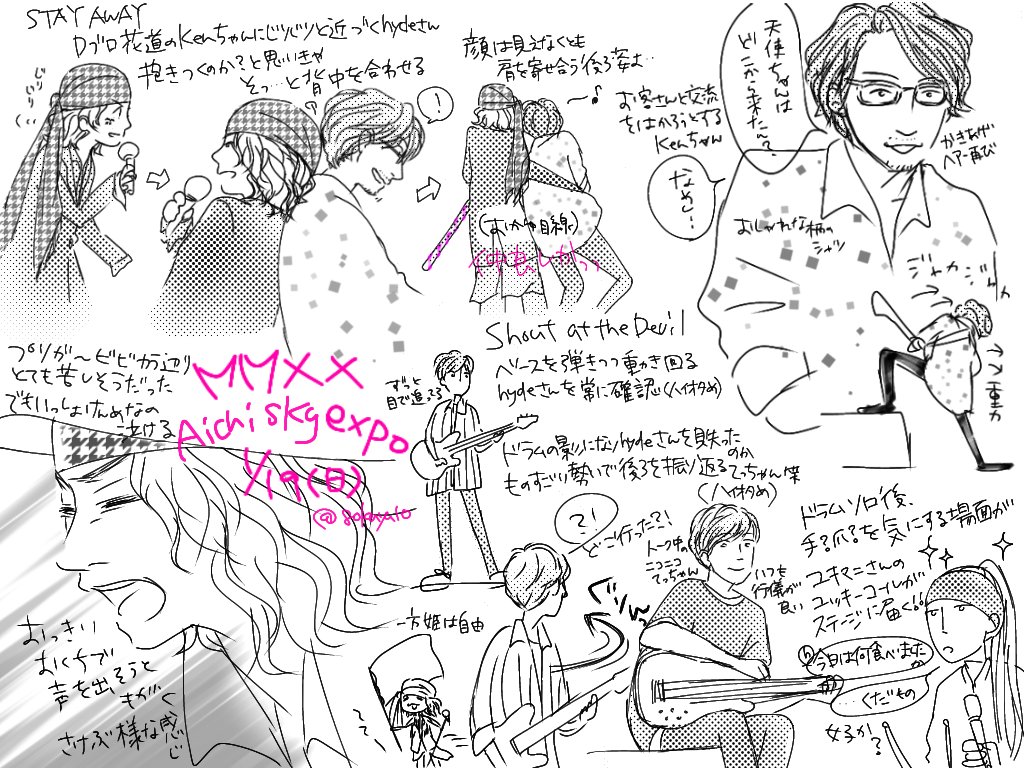 STAY AWAY
Dブロ花道のKenちゃんにジリジリと近づくhydeさん
抱きつくのか?と思いきや
そっ…と背中を合わせる
の
じりじり
!
顔は見えなくとも
肩を寄せ合う後ろ姿よ…
〜♪
お客さんと交流
をはかろうとする
Kenちゃん
天使ちゃんは
どこから来たん?
なぁ…
かきあげ
ヘアー再び
おしゃれな柄の
シャツ
(おしかや目線)
ジャカジャカ
重力
プリが〜ビビカラ辺り
とても苦しそうだった
でもいっしょけんめなの
泣ける
MMXX
Aichi sky expo
1/19(日)
ずっと
目で追ってる
Shout at the Devil
ベースを弾きつつ動き回る
hydeさんを常に確認(ハイオタめ)
ドラムの影になりhydeさんを見失った
のか
ものすごい勢いで後ろを振り返る
てっちゃん笑
(ハイオタめ)
?!
どこ行った?!
ぐりん
一方姫は自由
トーク中の
ニコニコ
てっちゃん
いつも
行儀が
良い
ドラムソロ後、
手?爪?を気にする場面が
ユキマニさんの
ユッキーコールが
ステージに届く!!
今日は何食べました
か
くだもの
女子か?
おっきい
おくちで
声を出そうと
もがく
さけぶ様な感じ